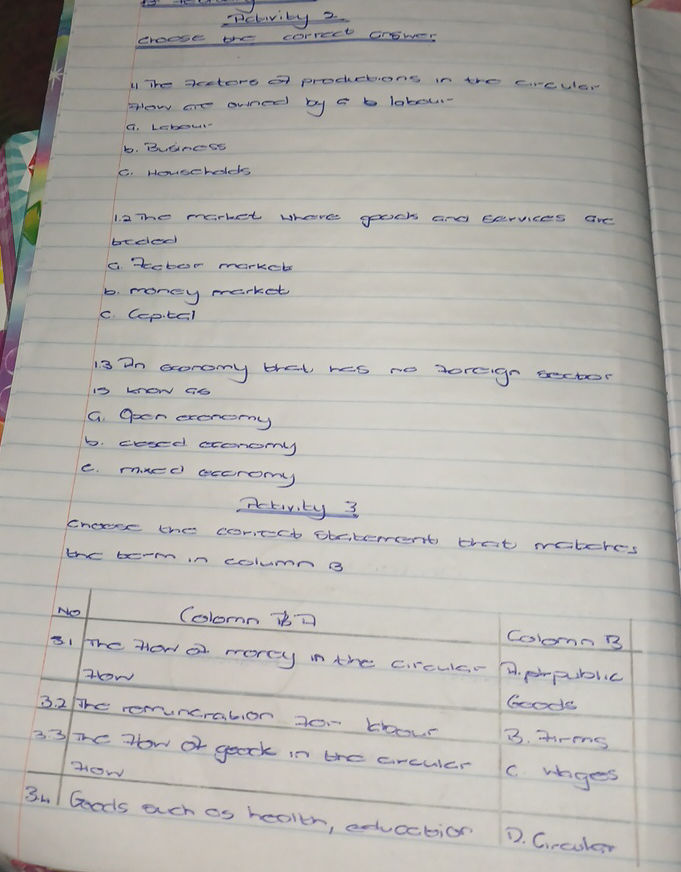 Activity 2
choose the correct answer
1.1 The factors of productions in the circular
flow are owned by a b labour
a. Labour
b. Business
c. Households
1.2 The market where goods and services are
traded
a. Factor market
b. money market
c. Capital
1.3 An economy that has no foreign sector
is know as
a. Open economy
b. closed economy
c. mixed economy
Activity 3
choose the correct statement that matches
the term in column B
No Colomn A Colomn B
3.1 The flow of money in the circular A. public
flow Goods
3.2 The remuneration for labour B. Firms
3.3 The flow of goods in the circular C. Wages
flow
3.4 Goods such as health, education D. Circular